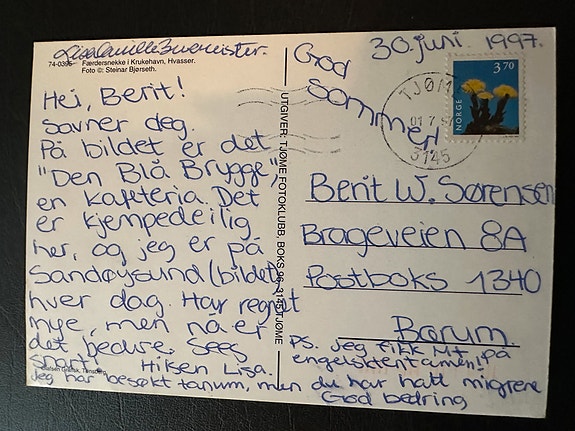 Lisa Camilla Burmeister.
74-0395 Færdersnekke i Krukehavn, Hvasser.
Foto ©: Steinar Bjørseth.
Hei, Berit!
Savner deg.
På bildet er det
"Den Blå Brygge",
en kafeteria. Det
er kjempedeilig
her, og jeg er på
Sandøysund (bildet)
hver dag. Har regnet
mye, men nå er
det bedre. Sees
snart! Hilsen Lisa.
Jeg har besøkt tanum, men du har hatt migrene
God bedring
UTGIVER: TJØME FOTOKLUBB, BOKS 96, 3145 TJØME
30. juni. 1997.
God
sommer!
TJØME
01 7
3145
NORGE
3.70
Berit W. Sørensen
Brageveien 8A
Postboks 1340
Borum.
PS. Jeg fikk M+ på
engelsktentamen!
Grafisk, Tønsberg